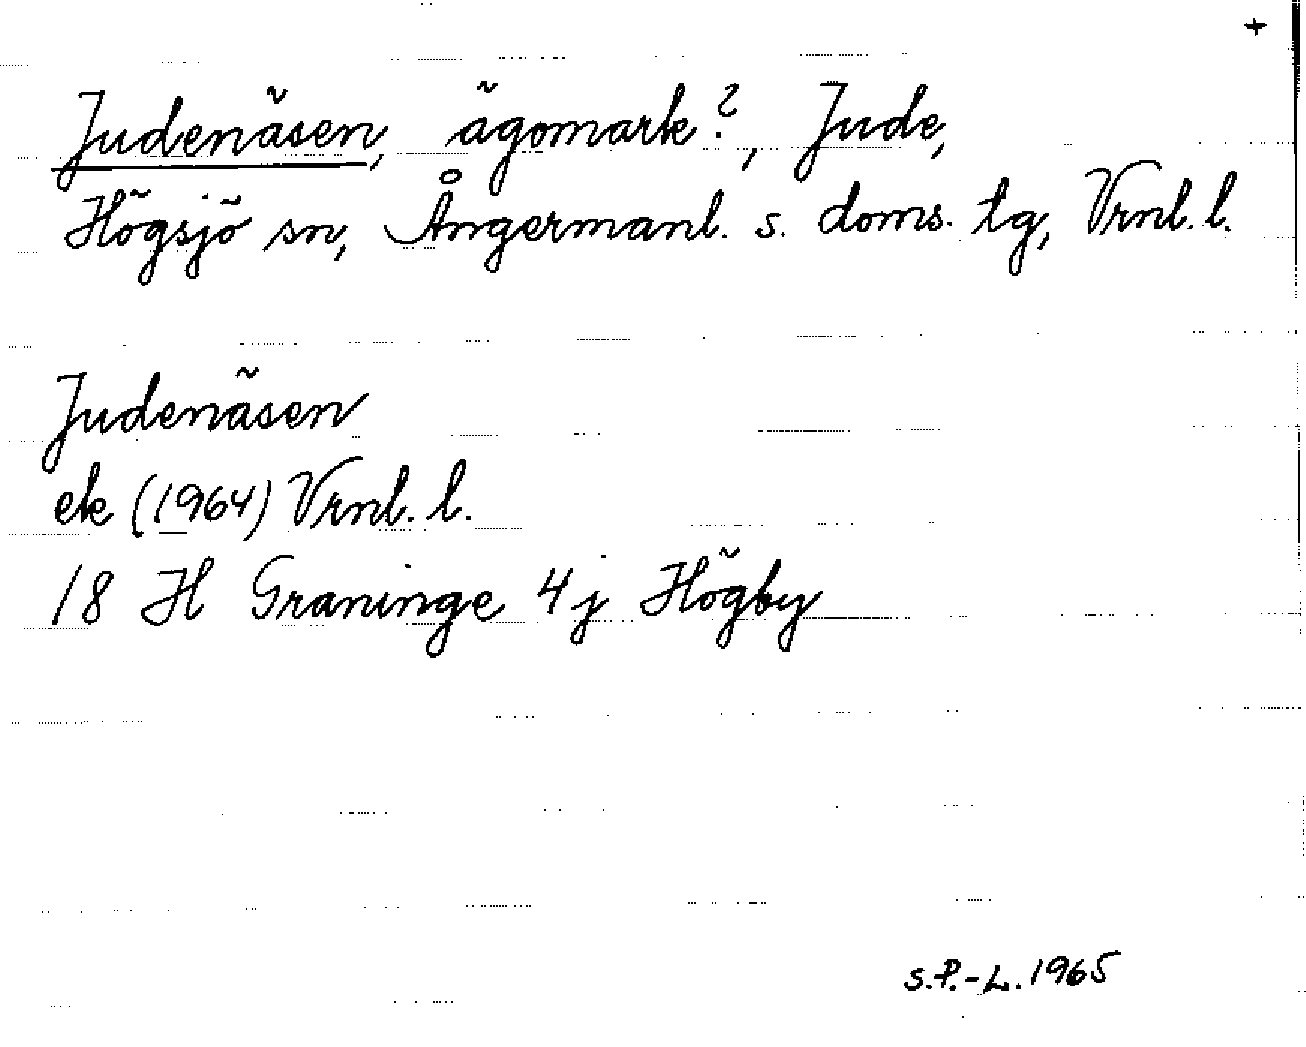 +
Judenäsen, ägomark?, Jude,
Högsjö sn, Ångermanl. s. doms. tg, Vrnl. l.
Judenäsen
ek (1964) Vrnl. l.
18 H Graninge 4j Högby
S.P.-L. 1965